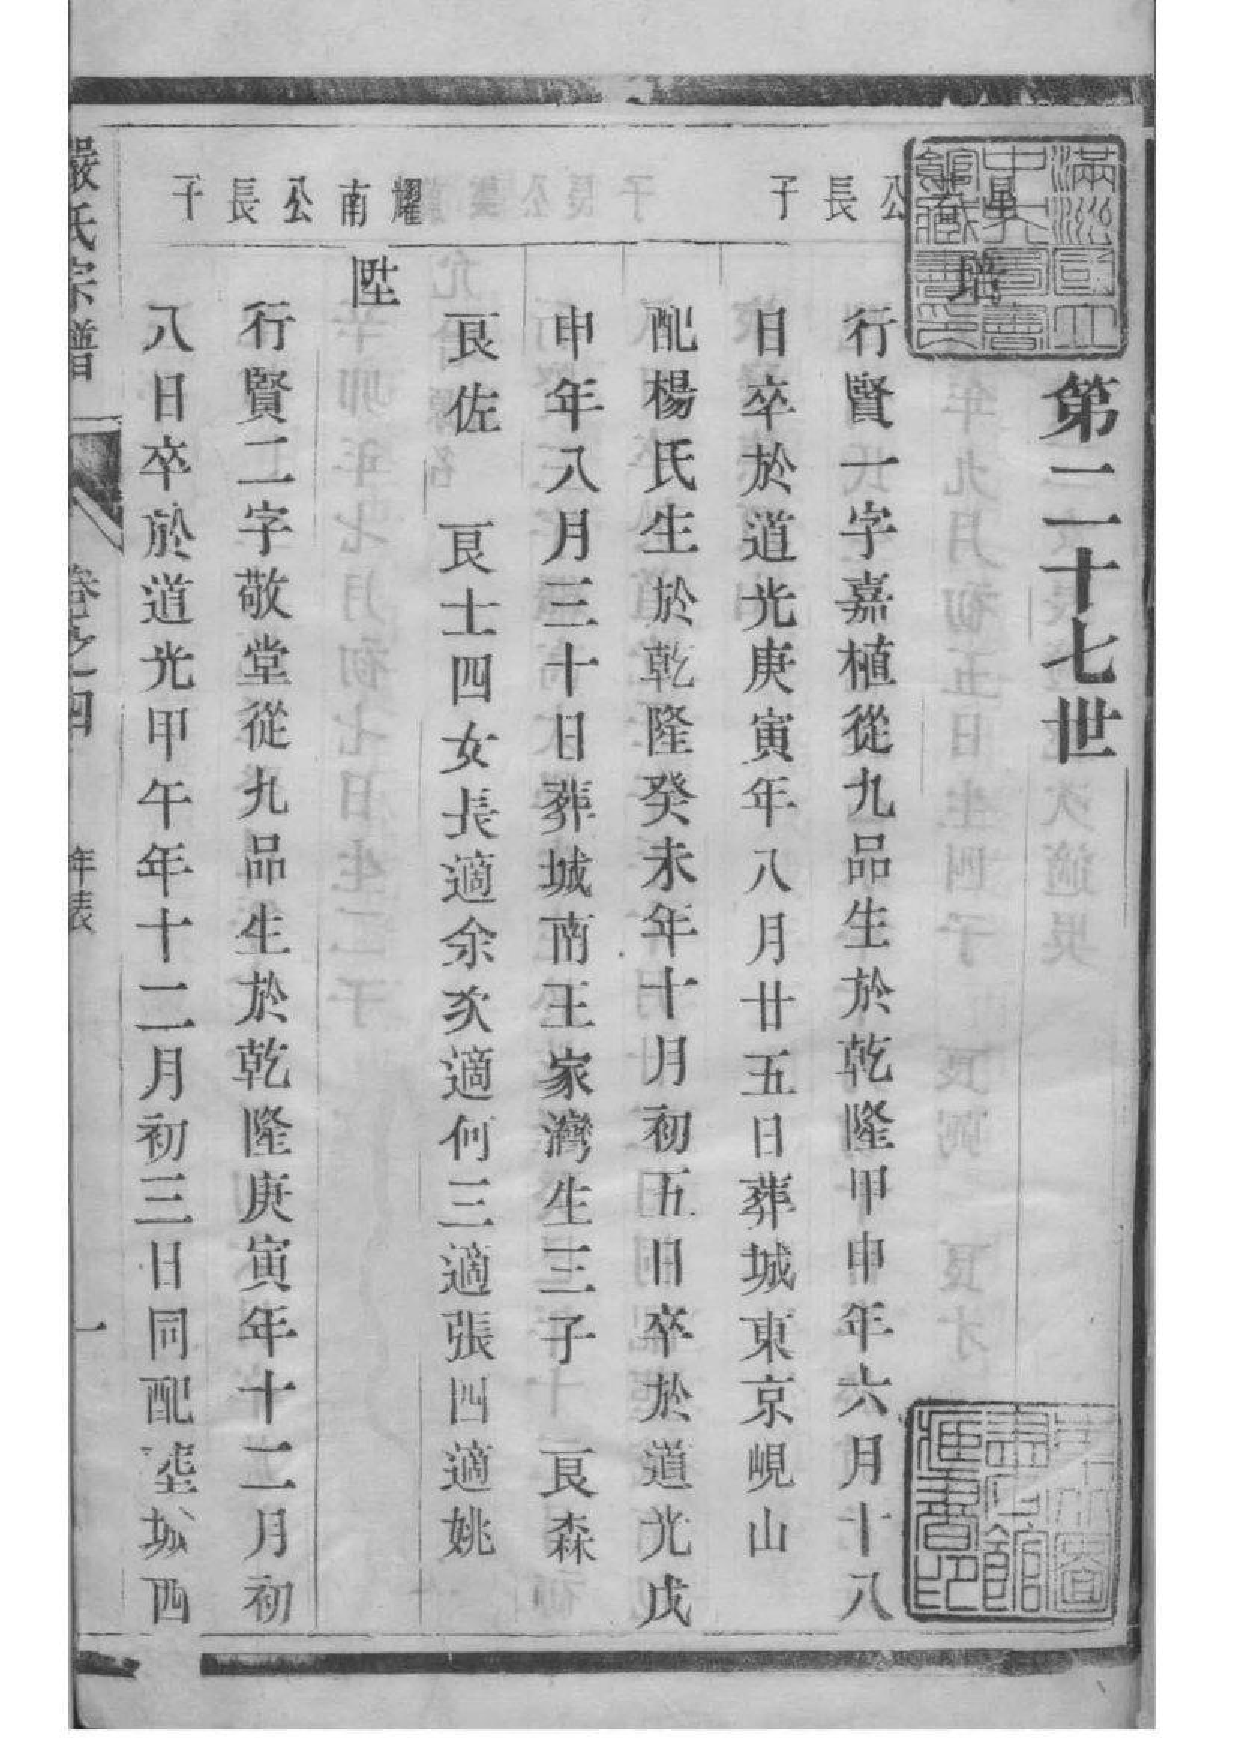 第二十七世
公長子
培
行賢一字嘉植從九品生於乾隆甲申年六月十八
日卒於道光庚寅年八月廿五日葬城東京峴山
配楊氏生於乾隆癸未年十月初五日卒於道光戊
申年八月三十日葬城南王家灣生三子 艮森
艮佐 艮士四女長適余次適何三適張四適姚
耀南公長子
陞
行賢二字敬堂從九品生於乾隆庚寅年十二月初
八日卒於道光甲午年十二月初三日同配葬城西
嚴氏宗譜 卷之四 年表 一
滿洲國立中央圖書館籌備處藏書之印